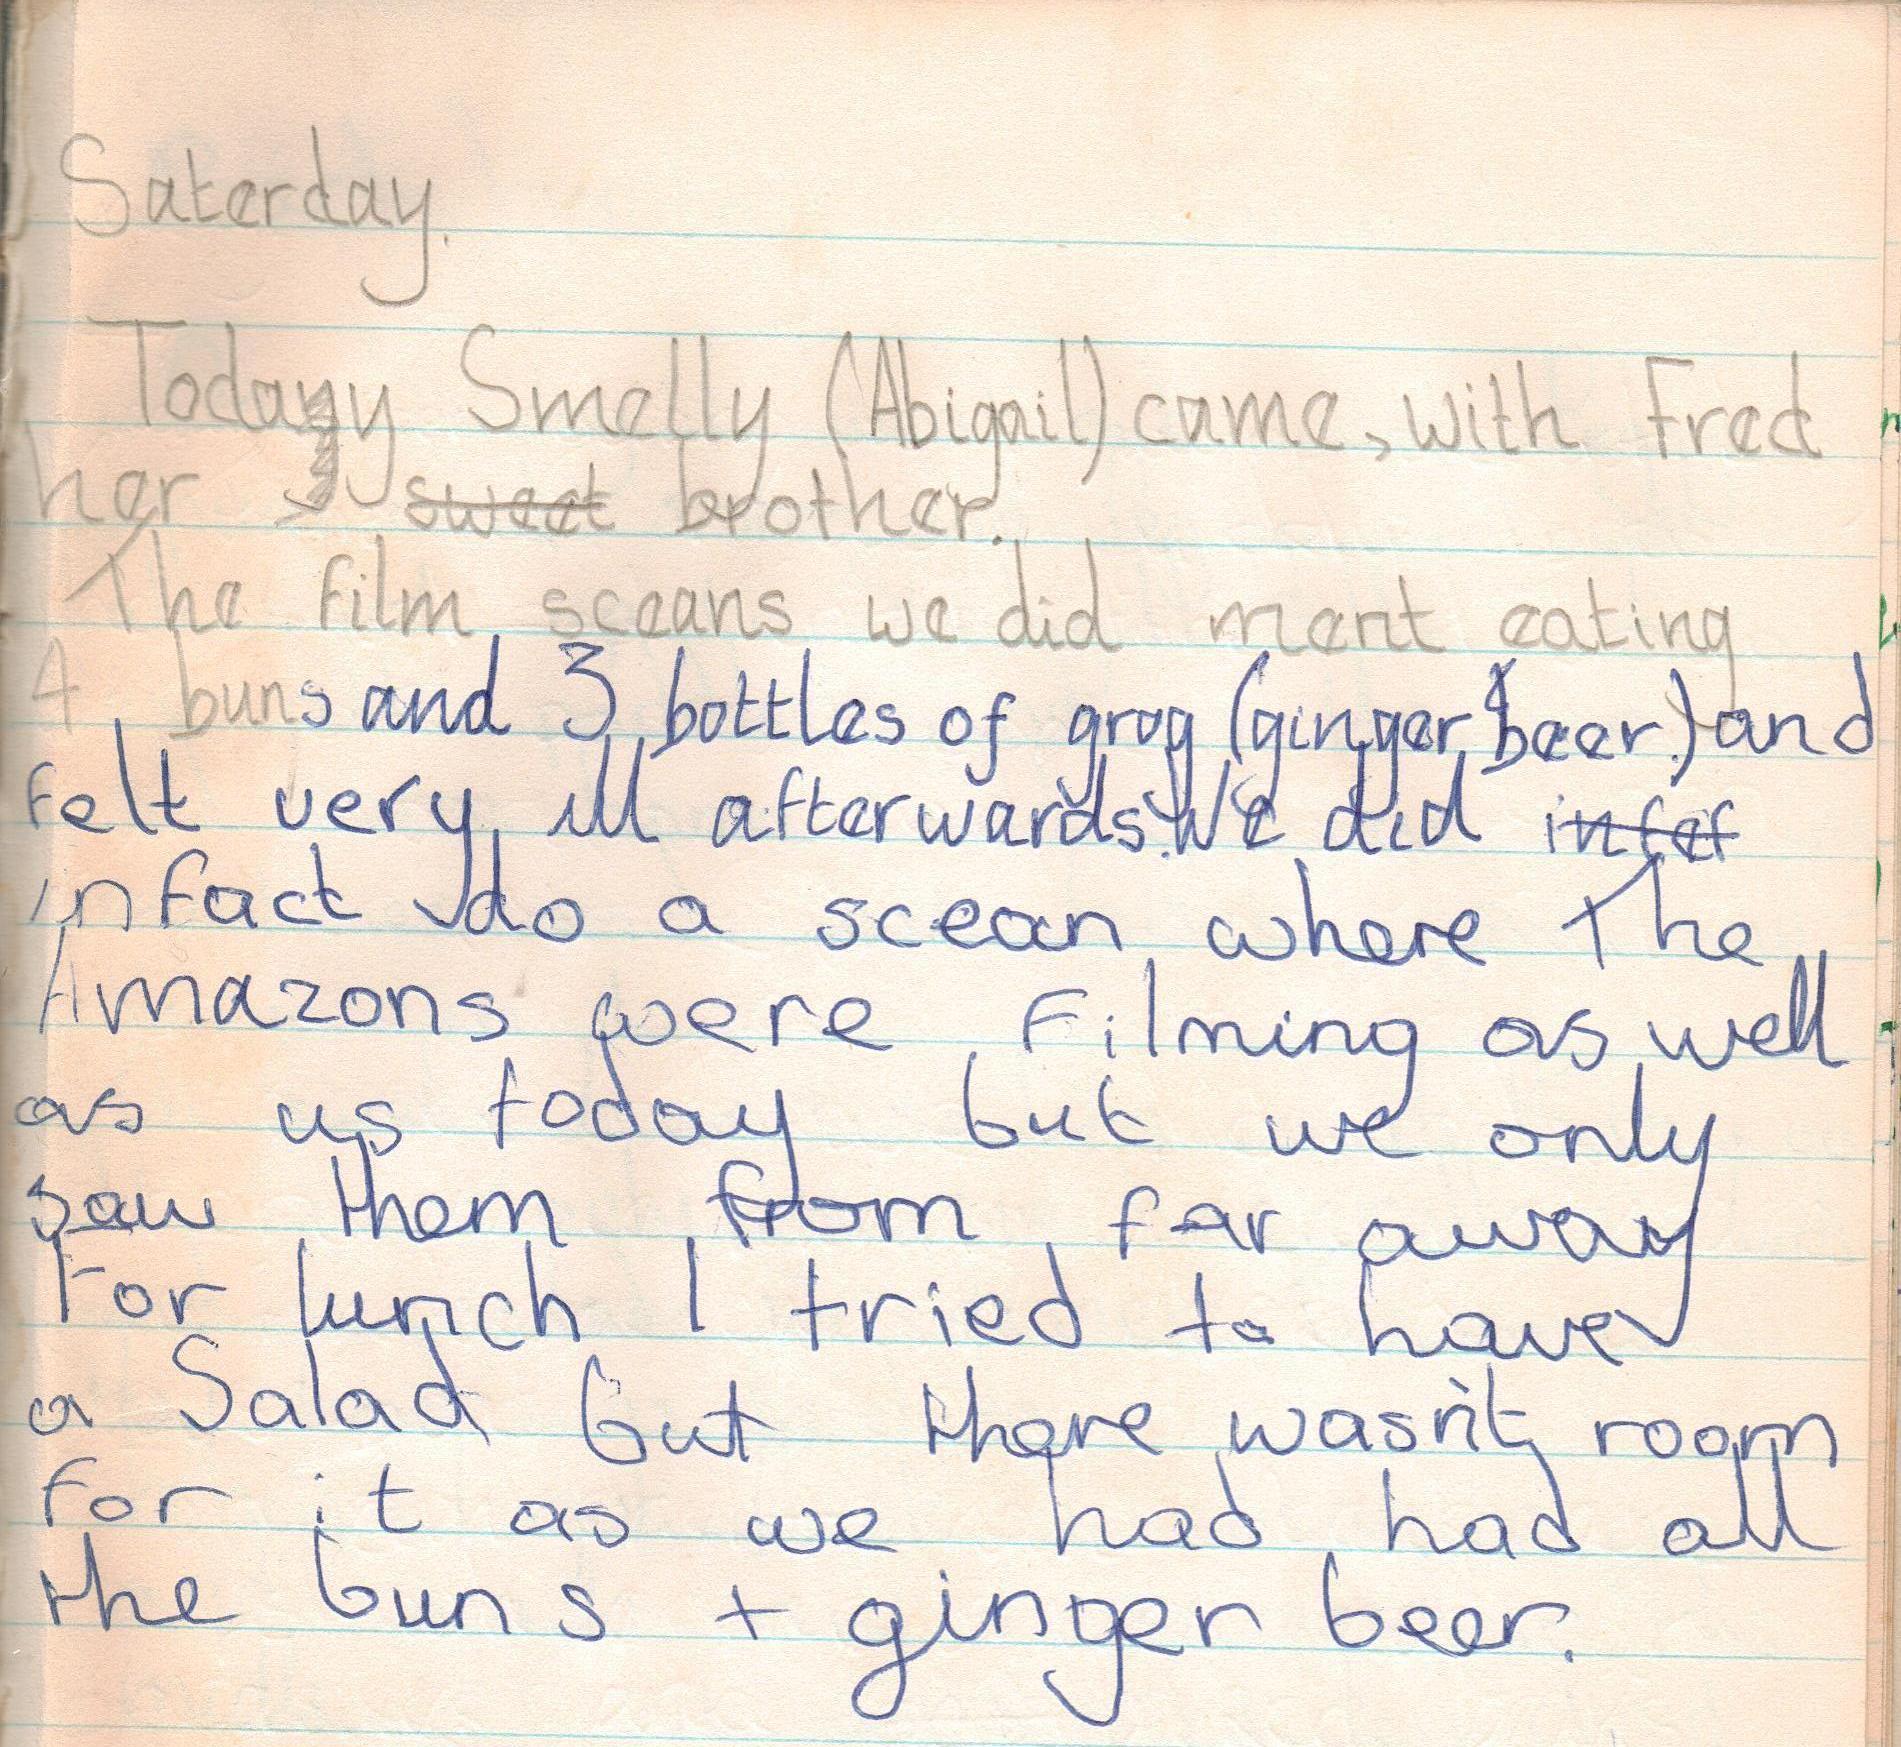 Saterday.
Today Smelly (Abigail) came, with Fred
her sweet brother.
The film sceans we did ment eating
4 buns and 3 bottles of grog (ginger beer.) and
felt very ill afterwards. We did intef
infact do a scean where The
Amazons were Filming as well
as us today but we only
saw them from far away
For lunch I tried to have
a Salad but there wasn't room
for it as we had had all
the buns + ginger beer.